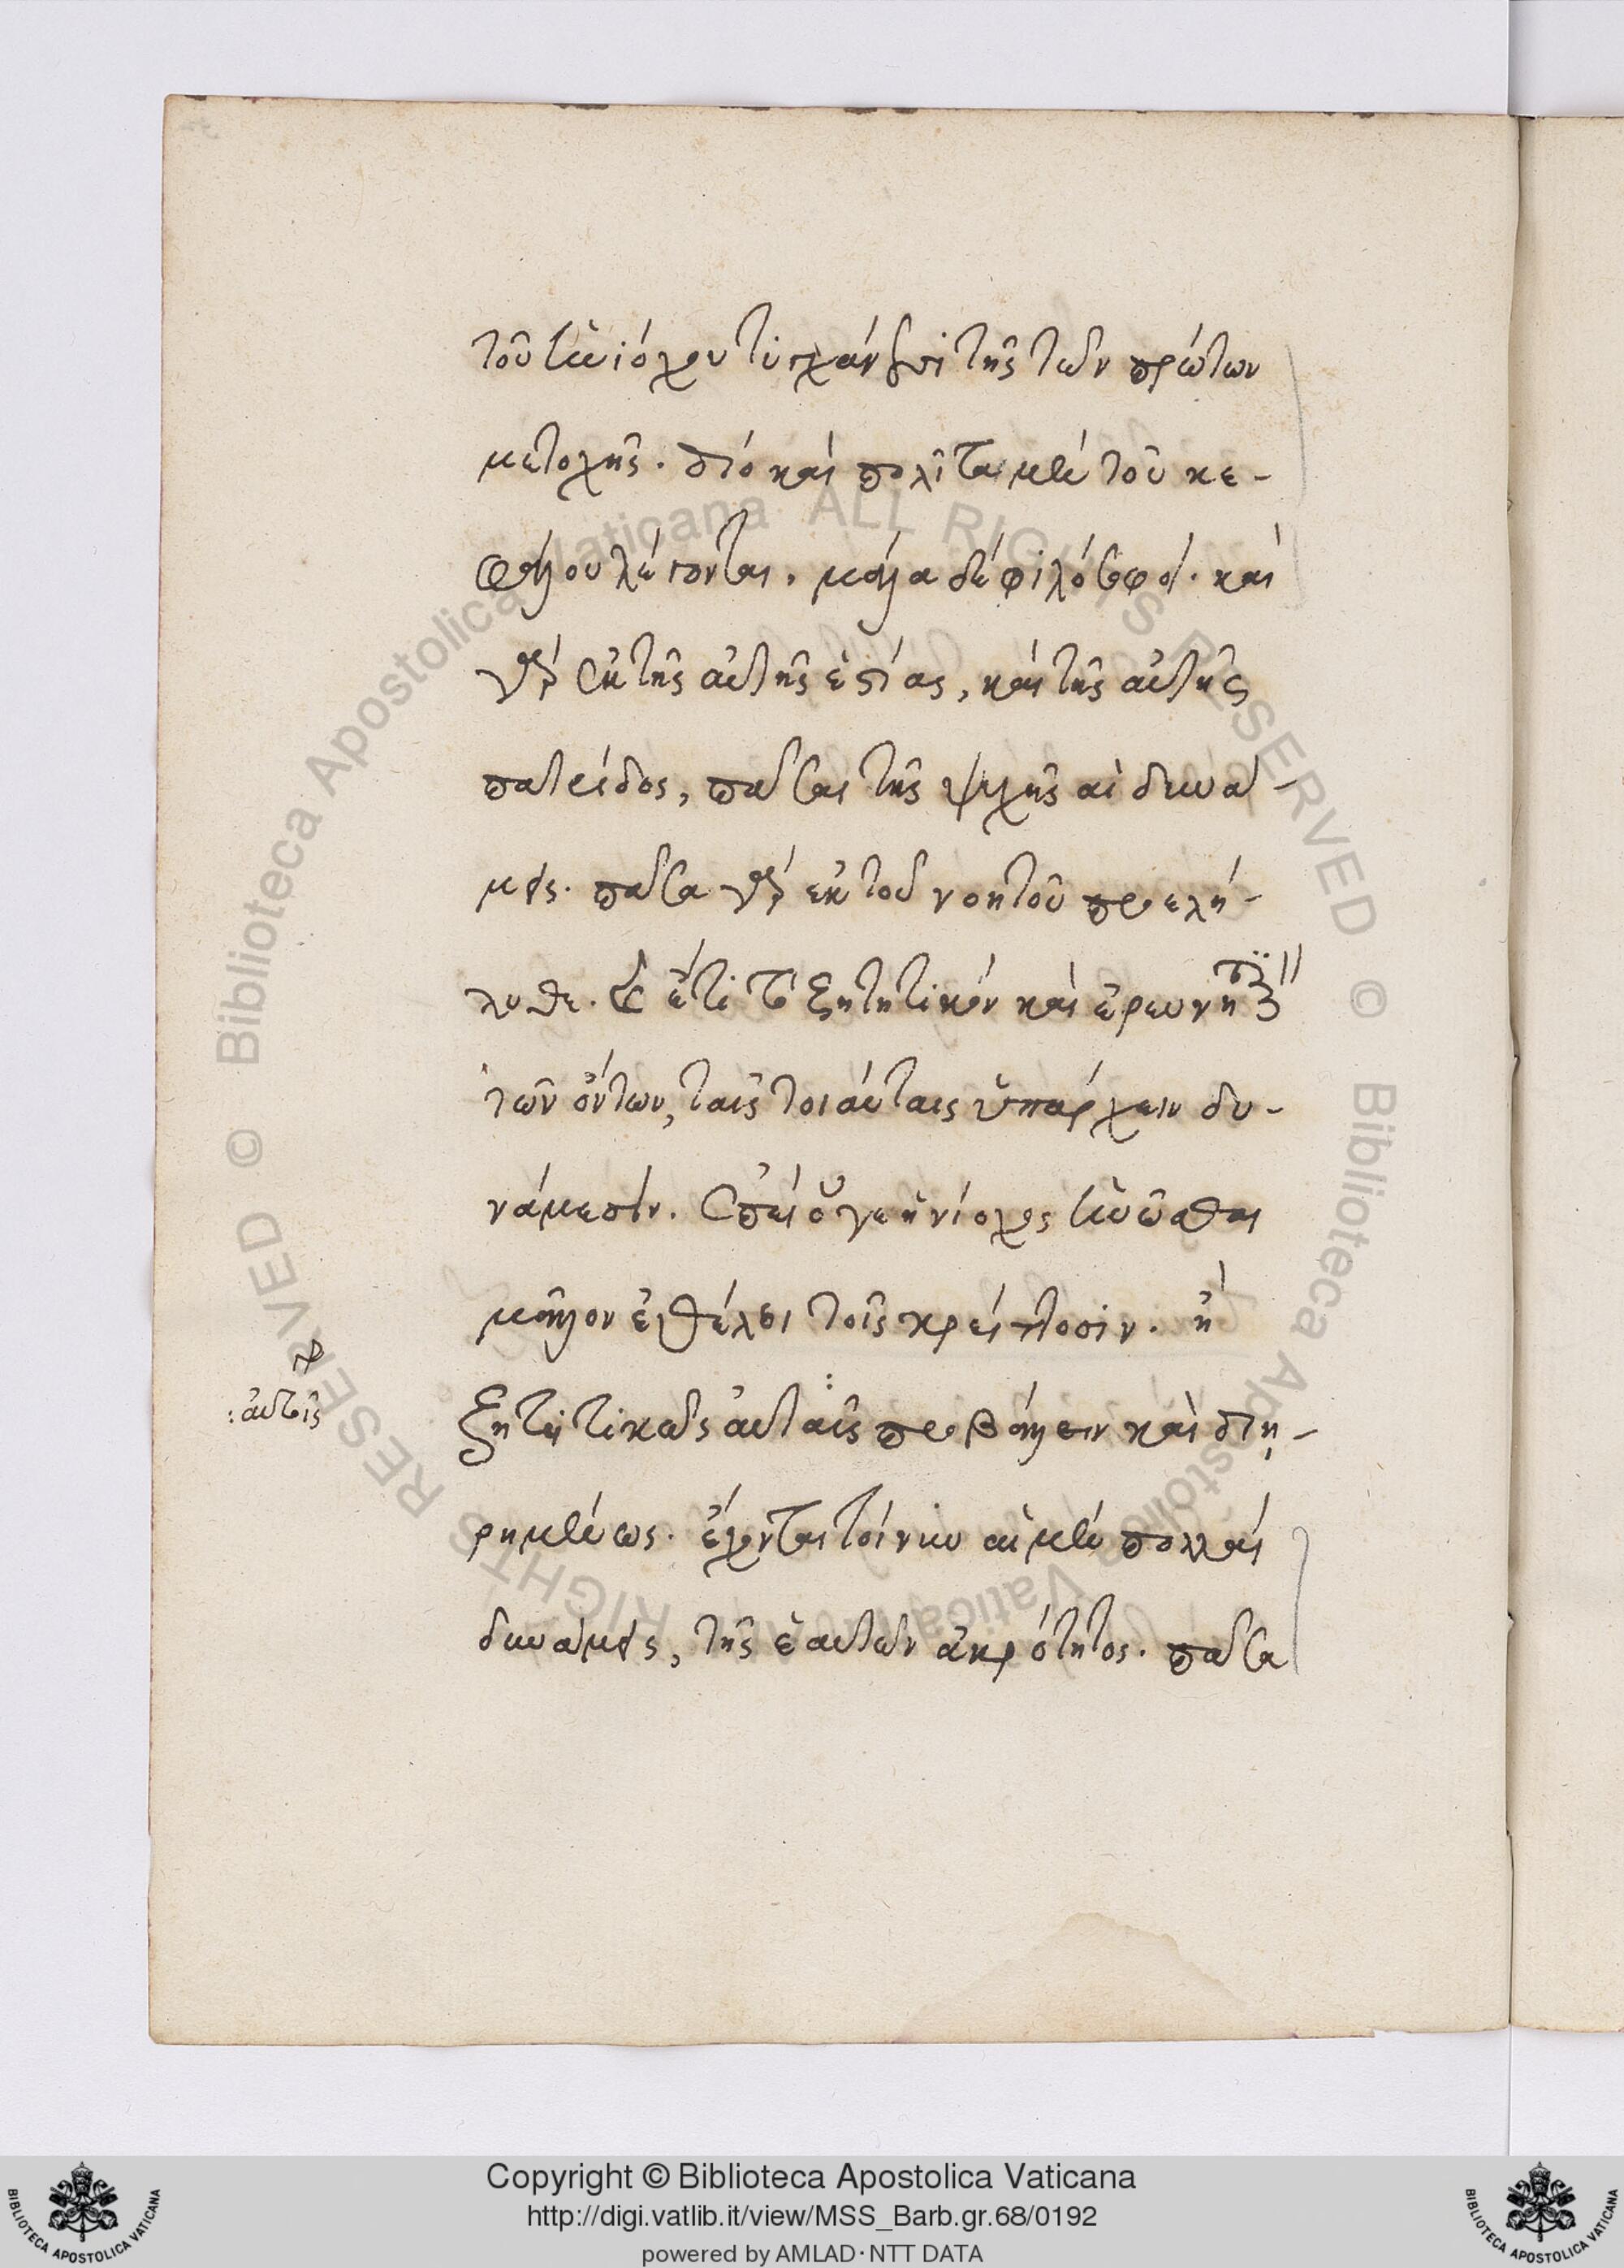 τοῦ ἡνιόχου τυγχάνουσι τῆς τῶν πρώτων
μετοχῆς. διὸ καὶ πολῖται μὲν τοῦ κε-
φάλου λέγονται. μάλα δὲ φιλόσοφοι. καὶ
γὰρ ἐκ τῆς αὐτῆς ἑστίας, καὶ τῆς αὐτῆς
πατρίδος, πᾶσαι τῆς ψυχῆς αἱ δυνά-
μεις. πᾶσα γὰρ ἐκ τοῦ νοητοῦ προελή-
λυθε. καὶ ἔτι τὸ ζητητικὸν καὶ ἐρευνητικὸν
τῶν ὄντων, ταῖς τοιαύταις ὑπάρχειν δυ-
νάμεσιν. ἐπεὶ ὅ γε ἡνίοχος ἡνῶσθαι
μᾶλλον ἐθέλει τοῖς κρείττοσιν. ἢ
: αὐτοῖς
ζητητικῶς αὐταῖς προβάλλειν καὶ διῃ-
ρημένως. ἔχονται τοίνυν αἱ μὲν πολλαὶ
δυνάμεις, τῆς ἑαυτῶν ἀκρότητος. πᾶσα
Biblioteca Apostolica Vaticana ALL RIGHTS RESERVED ©
Biblioteca Apostolica Vaticana ALL RIGHTS RESERVED ©
Copyright © Biblioteca Apostolica Vaticana
http://digi.vatlib.it/view/MSS_Barb.gr.68/0192
powered by AMLAD · NTT DATA
BIBLIOTECA APOSTOLICA VATICANA
BIBLIOTECA APOSTOLICA VATICANA